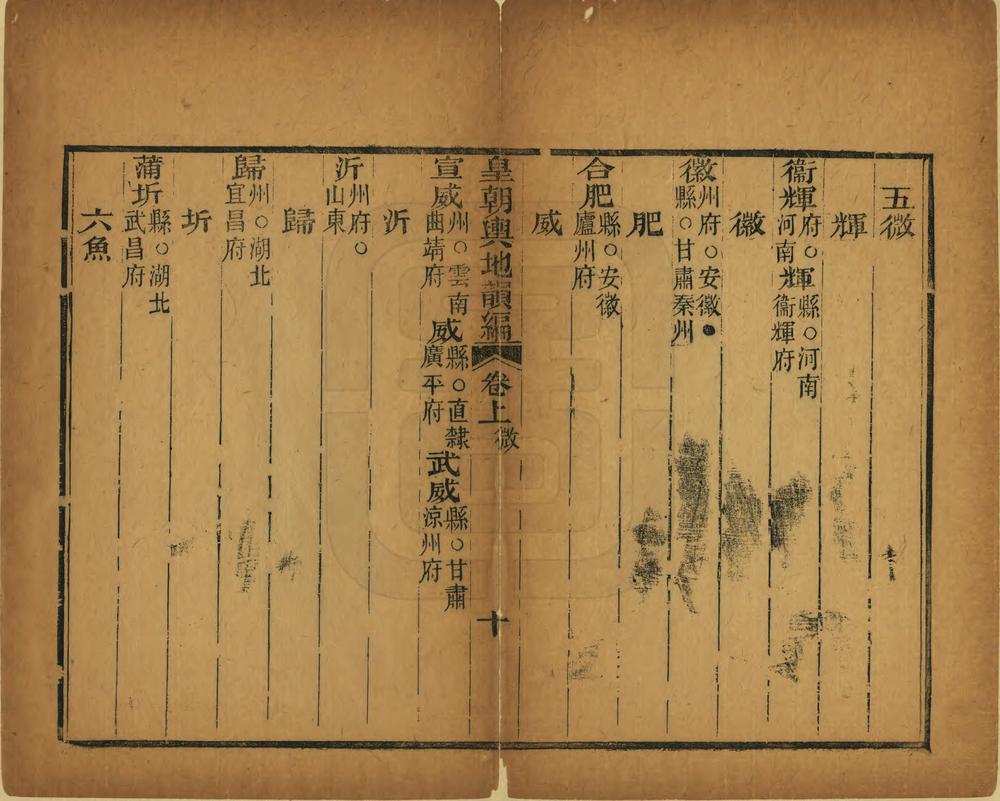 五微
輝
衞輝府○河南輝縣○河南衞輝府
徽
徽州府○安徽●縣○甘肅秦州
肥
合肥縣○安徽廬州府
威
皇朝輿地韻編 卷上 微 十
宣威州○雲南曲靖府威縣○直隸廣平府武威縣○甘肅涼州府
沂
沂州府○山東
歸
歸州○湖北宜昌府
圻
蒲圻縣○湖北武昌府
六魚